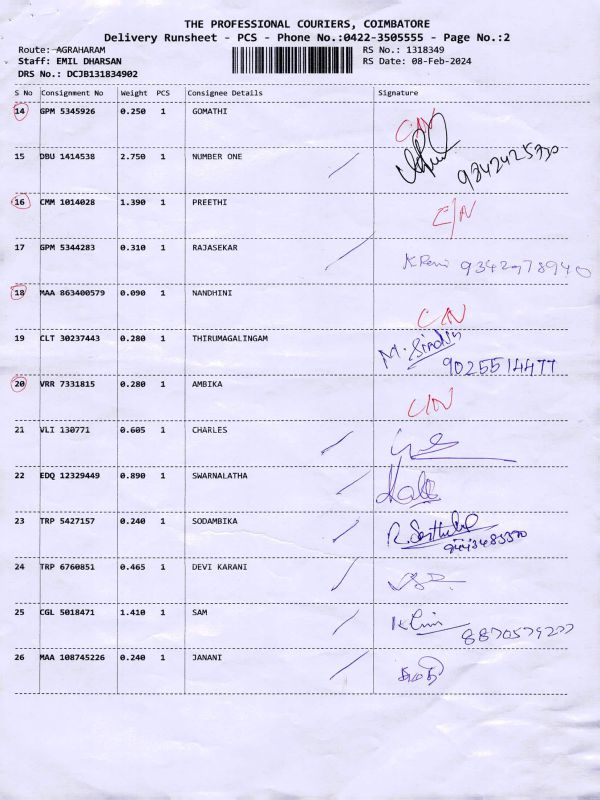 THE PROFESSIONAL COURIERS, COIMBATORE
Delivery Runsheet - PCS - Phone No.:0422-3505555 - Page No.:2
Route: AGRAHARAM RS No.: 1318349
Staff: EMIL DHARSAN RS Date: 08-Feb-2024
DRS No.: DCJB131834902
S No Consignment No Weight PCS Consignee Details Signature
14 GPM 5345926 0.250 1 GOMATHI C/N
15 DBU 1414538 2.750 1 NUMBER ONE
16 CMM 1014028 1.390 1 PREETHI C/N
17 GPM 5344283 0.310 1 RAJASEKAR
18 MAA 863400579 0.090 1 NANDHINI C/N
19 CLT 30237443 0.280 1 THIRUMAGALINGAM
9025514477
20 VRR 7331815 0.280 1 AMBIKA C/N
21 VLI 130771 0.605 1 CHARLES
22 EDQ 12329449 0.890 1 SWARNALATHA
23 TRP 5427157 0.240 1 SODAMBIKA
24 TRP 6760851 0.465 1 DEVI KARANI
25 CGL 5018471 1.410 1 SAM
26 MAA 108745226 0.240 1 JANANI